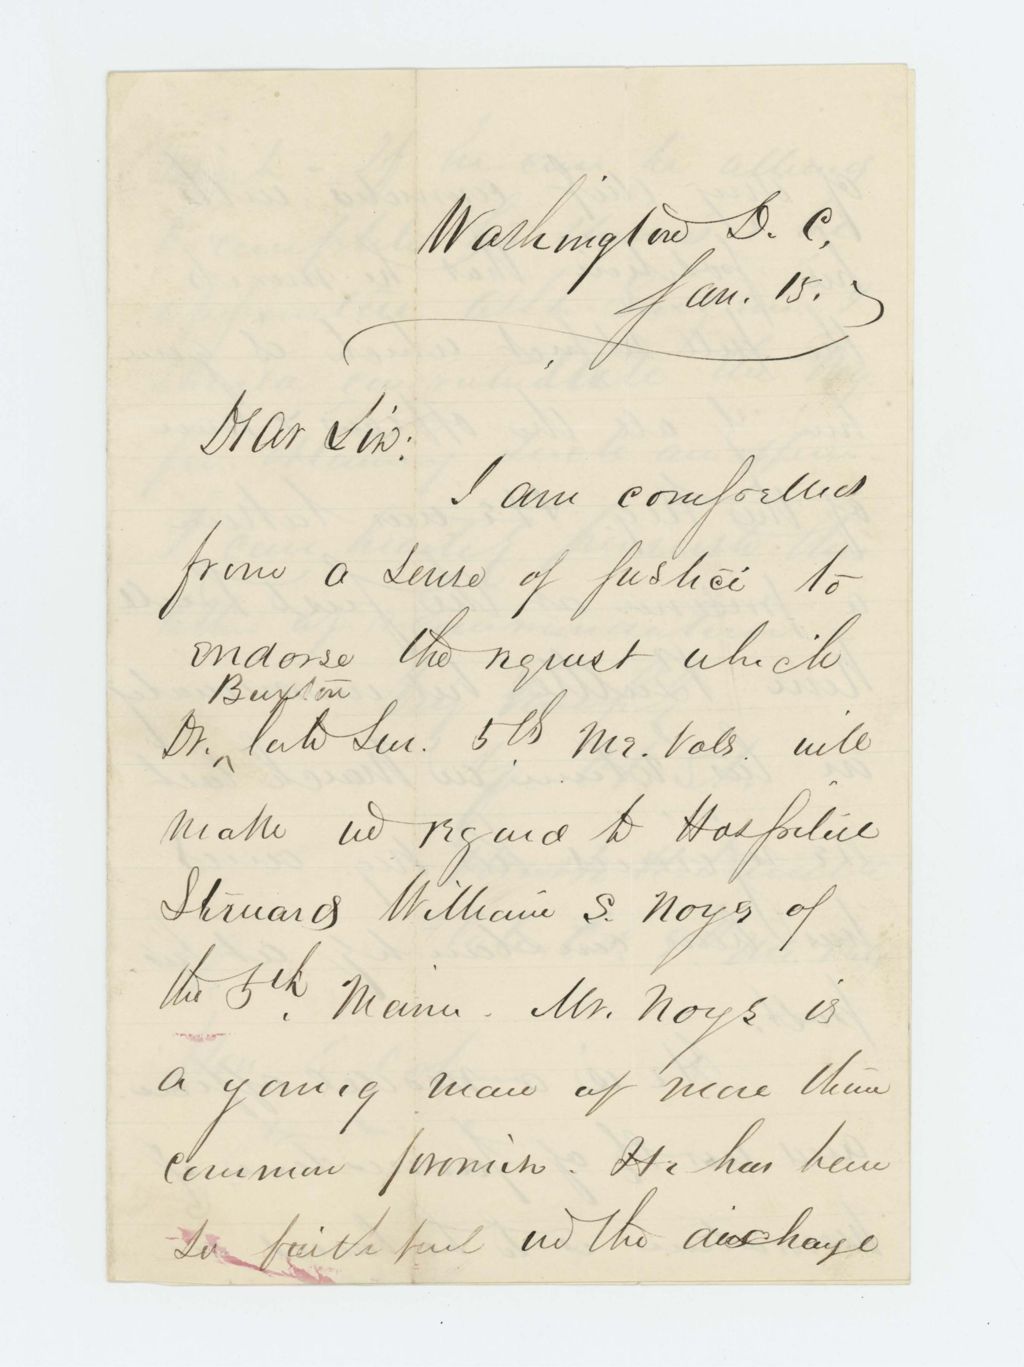 Washington D. C.
Jan. 15.
Dear Sir:
I am compelled
from a sense of justice to
endorse the request which
Buxton
Dr. ^ late Sur. 5th Me. Vols. will
make in regard to Hospital
Steward William S. Noyes of
the 5th Maine. Mr. Noyes is
a young man of more than
common promise. He has been
so faithful in the discharge